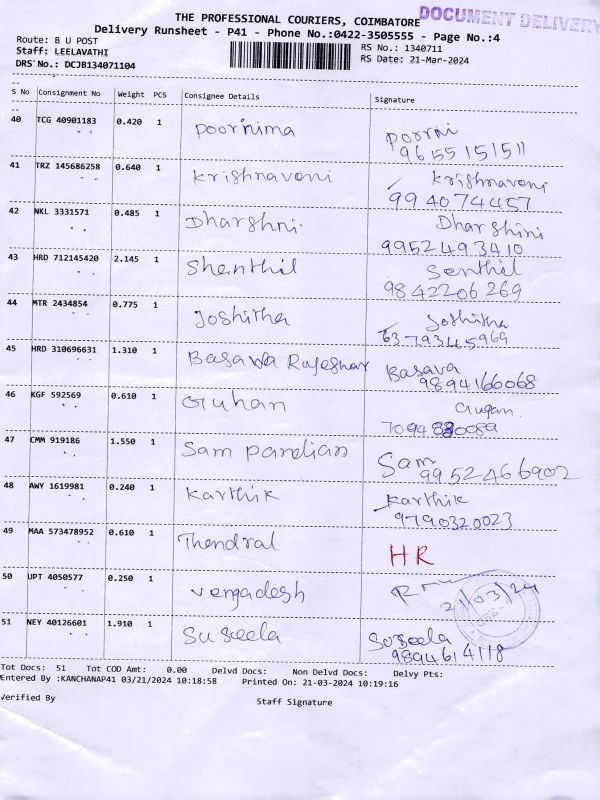 THE PROFESSIONAL COURIERS, COIMBATORE
DOCUMENT DELIVERY
Delivery Runsheet - P41 - Phone No.:0422-3505555 - Page No.:4
Route: B U POST
RS No.: 1340711
Staff: LEELAVATHI
RS Date: 21-Mar-2024
DRS No.: DCJB134071104
S No Consignment No Weight PCS Consignee Details Signature
40 TCG 40901183 0.420 1 Poornima Poorni
9615515151
41 TRZ 145686258 0.640 1 Krishnaveni Krishnaveni
994074457
42 NKL 3331571 0.485 1 Dharshni Dharshini
9952493410
43 HRD 712145420 2.145 1 Shenthil Senthil
9842206269
44 MTR 2434854 0.775 1 Joshitha Joshitha
6379345969
45 HRD 310696631 1.310 1 Basava Rajeshwar Basava
9894166068
46 KGF 592569 0.610 1 Guhan Gugan.
47 CMM 919186 1.550 1 Sam Pandian Sam
9952466902
48 AWY 1619981 0.240 1 Karthik Karthik
9790320023
49 MAA 573478952 0.610 1 Thendral HR
50 UPT 4050577 0.250 1 Vengadesh
21/03/24
51 NEY 40126601 1.910 1 Suseela Suseela
9894614118
Tot Docs: 51 Tot COD Amt: 0.00 Delvd Docs: Non Delvd Docs: Delvy Pts:
Entered By :KANCHANAP41 03/21/2024 10:18:58 Printed On: 21-03-2024 10:19:16
Verified By
Staff Signature